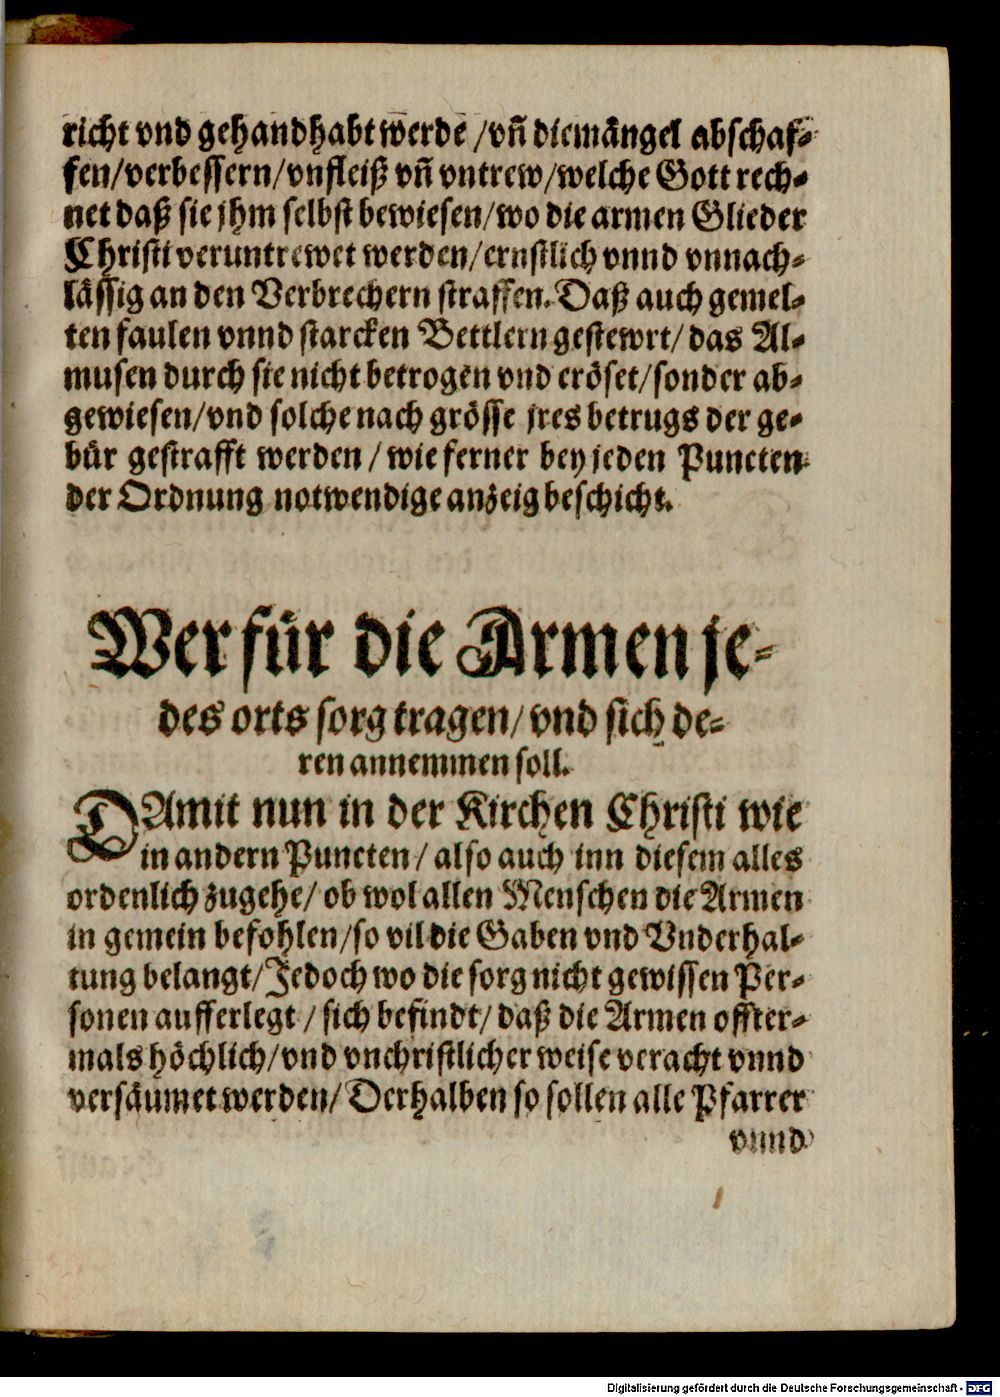 richt vnd gehandhabt werde /vn̄ die mängel abschaf⸗
fen/verbessern/vnfleiß vn̄ vntrew/welche Gott rech⸗
net daß sie jhm selbst bewiesen/wo die armen Glieder
Christi veruntrewet werden/ernstlich vnnd vnnach⸗
lässig an den Verbrechern straffen. Daß auch gemel⸗
ten faulen vnnd starcken Bettlern gestewrt/ das Al⸗
musen durch sie nicht betrogen vnd eröset/sonder ab⸗
gewiesen/vnd solche nach grösse jres betrugs der ge⸗
bür gestrafft werden /wie ferner bey jeden Puncten
der Ordnung notwendige anzeig beschicht.
Wer für die Armen je⸗
des orts sorg tragen/ vnd sich de⸗
ren annemmen soll.
DAmit nun in der Kirchen Christi wie
in andern Puncten/ also auch inn diesem alles
ordenlich zugehe/ ob wol allen Menschen die Armen
in gemein befohlen/so vil die Gaben vnd Vnderhal⸗
tung belangt/Jedoch wo die sorg nicht gewissen Per⸗
sonen aufferlegt /sich befindt/ daß die Armen offter⸗
mals höchlich/vnd vnchristlicher weise veracht vnnd
versäumet werden/ Derhalben so sollen alle Pfarrer
vnnd
Digitalisierung gefördert durch die Deutsche Forschungsgemeinschaft - DFG